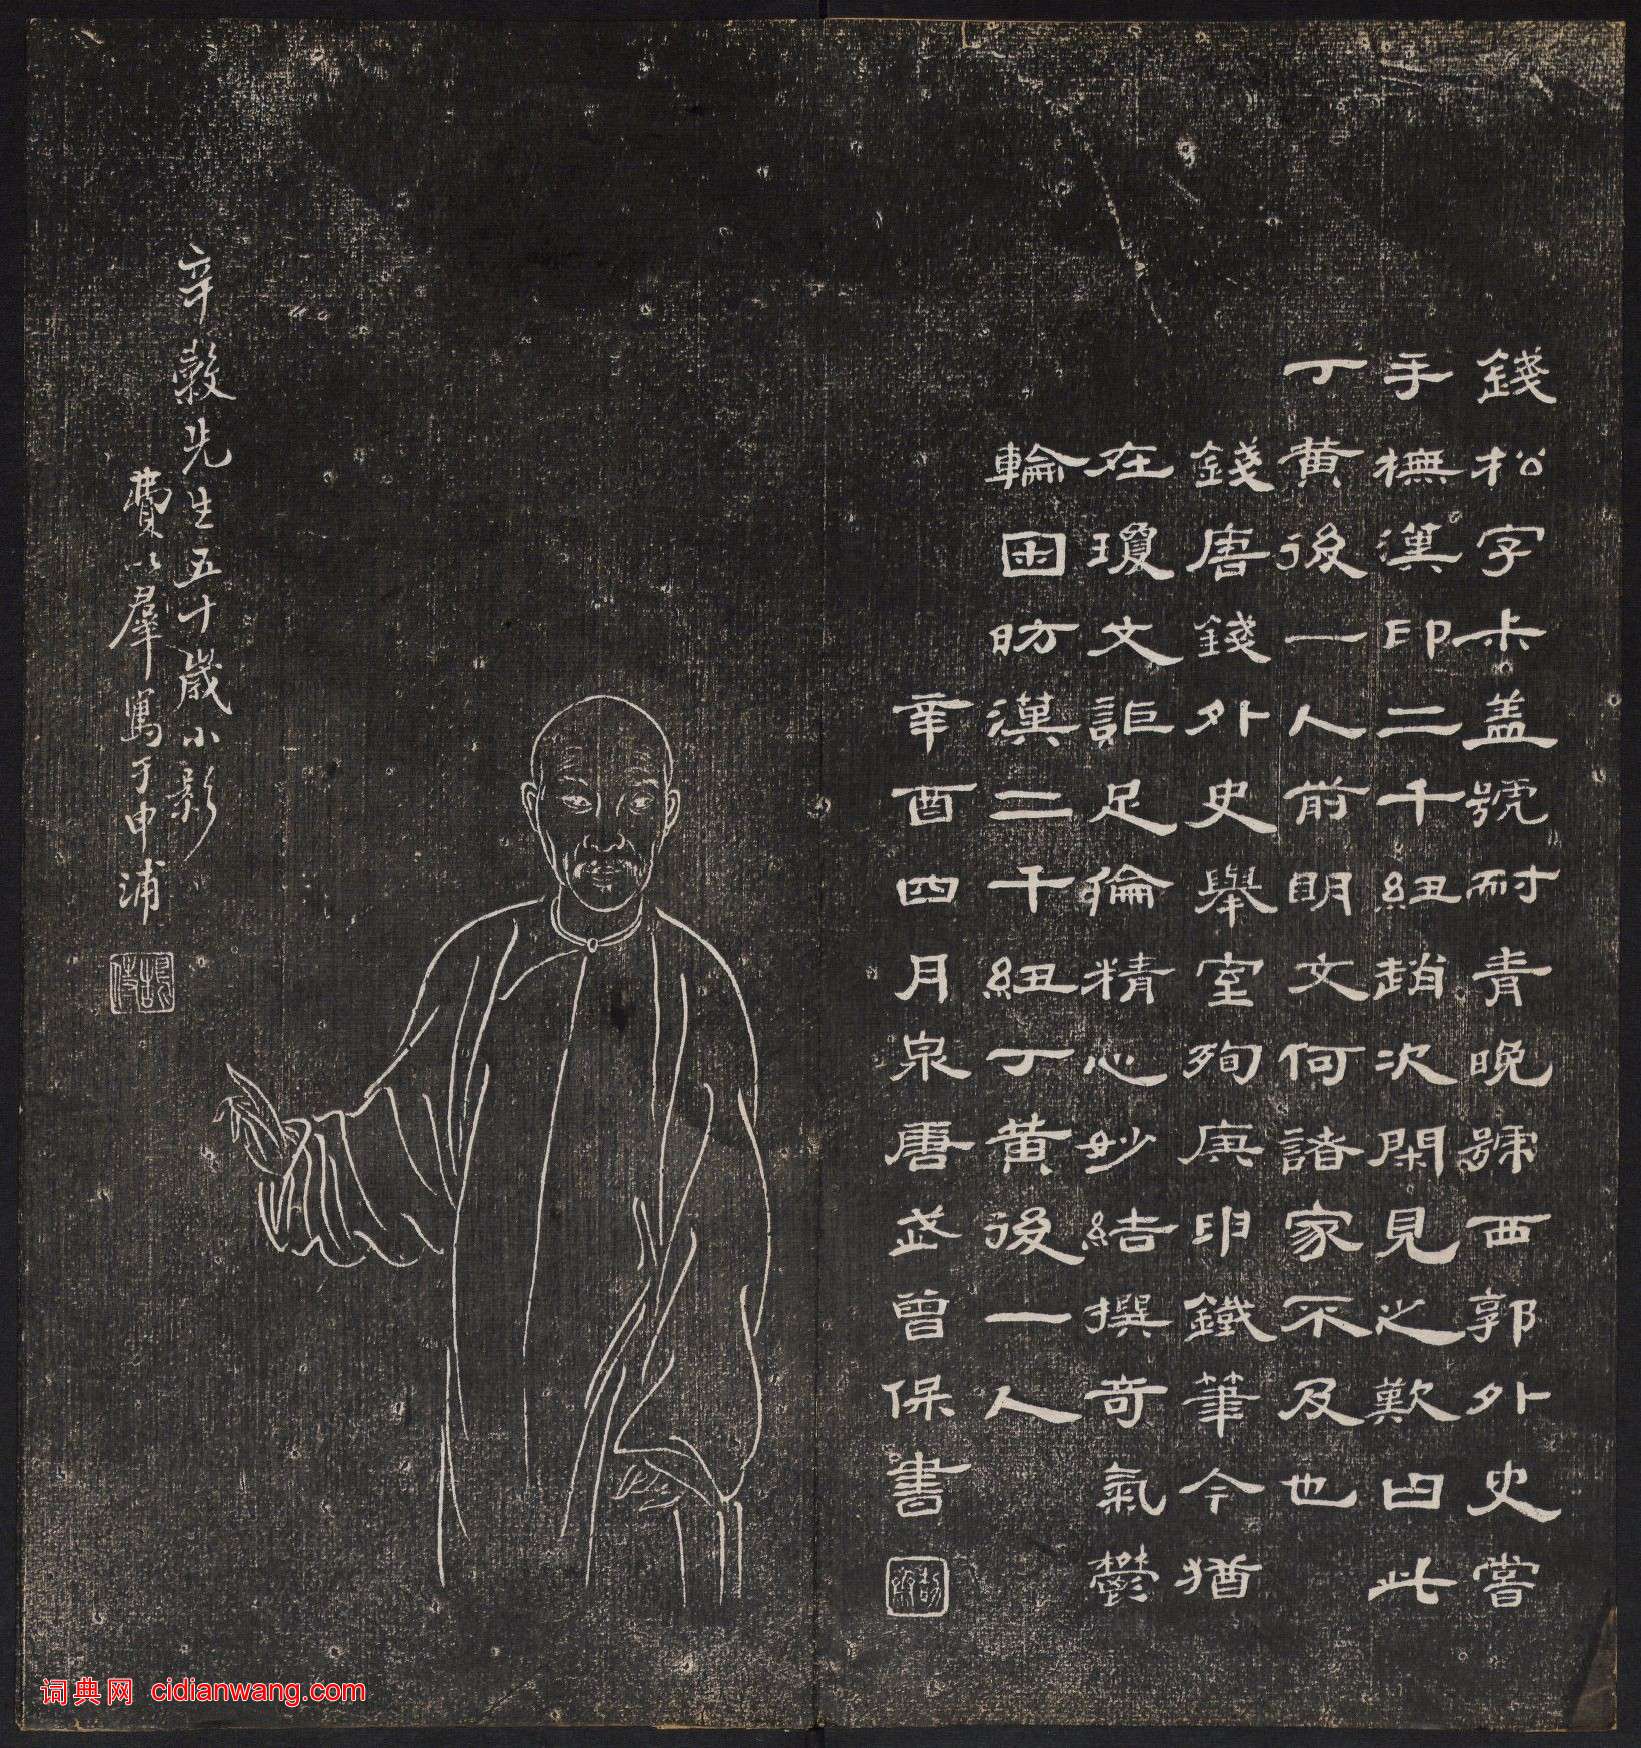 錢松字叔蓋號耐青晚號西郭外史嘗
手橅漢印二千紐趙次閑見之歎曰此
丁黄後一人前明文何諸家不及也
錢唐錢外史舉室殉庚申鐵筆今猶
在瓊文詎足倫精心妙結撰奇氣鬱
輪囷昉漢二千紐丁黄後一人
辛酉四月泉唐武曾保書
辛穀先生五十歲小影
費以羣寫于申浦
词典网 cidianwang.com